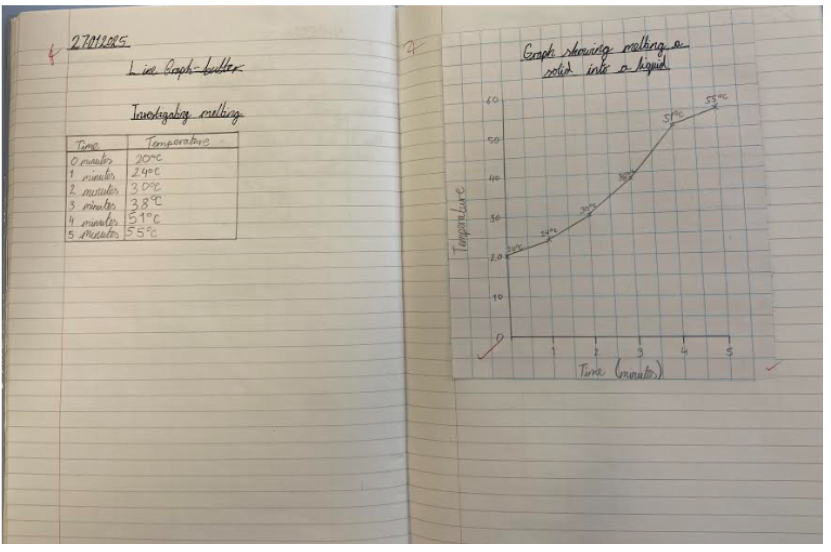 27.01.2025
Line Graph - butter
Investigating melting
Time Temperature
0 minutes 20°C
1 minutes 24°C
2 minutes 30°C
3 minutes 38°C
4 minutes 51°C
5 minutes 55°C
Graph showing melting a
solid into a liquid
Temperature
60
50
40
30
20
10
0
20°C
24°C
30°C
38°C
51°C
55°C
1 2 3 4 5
Time (minutes)